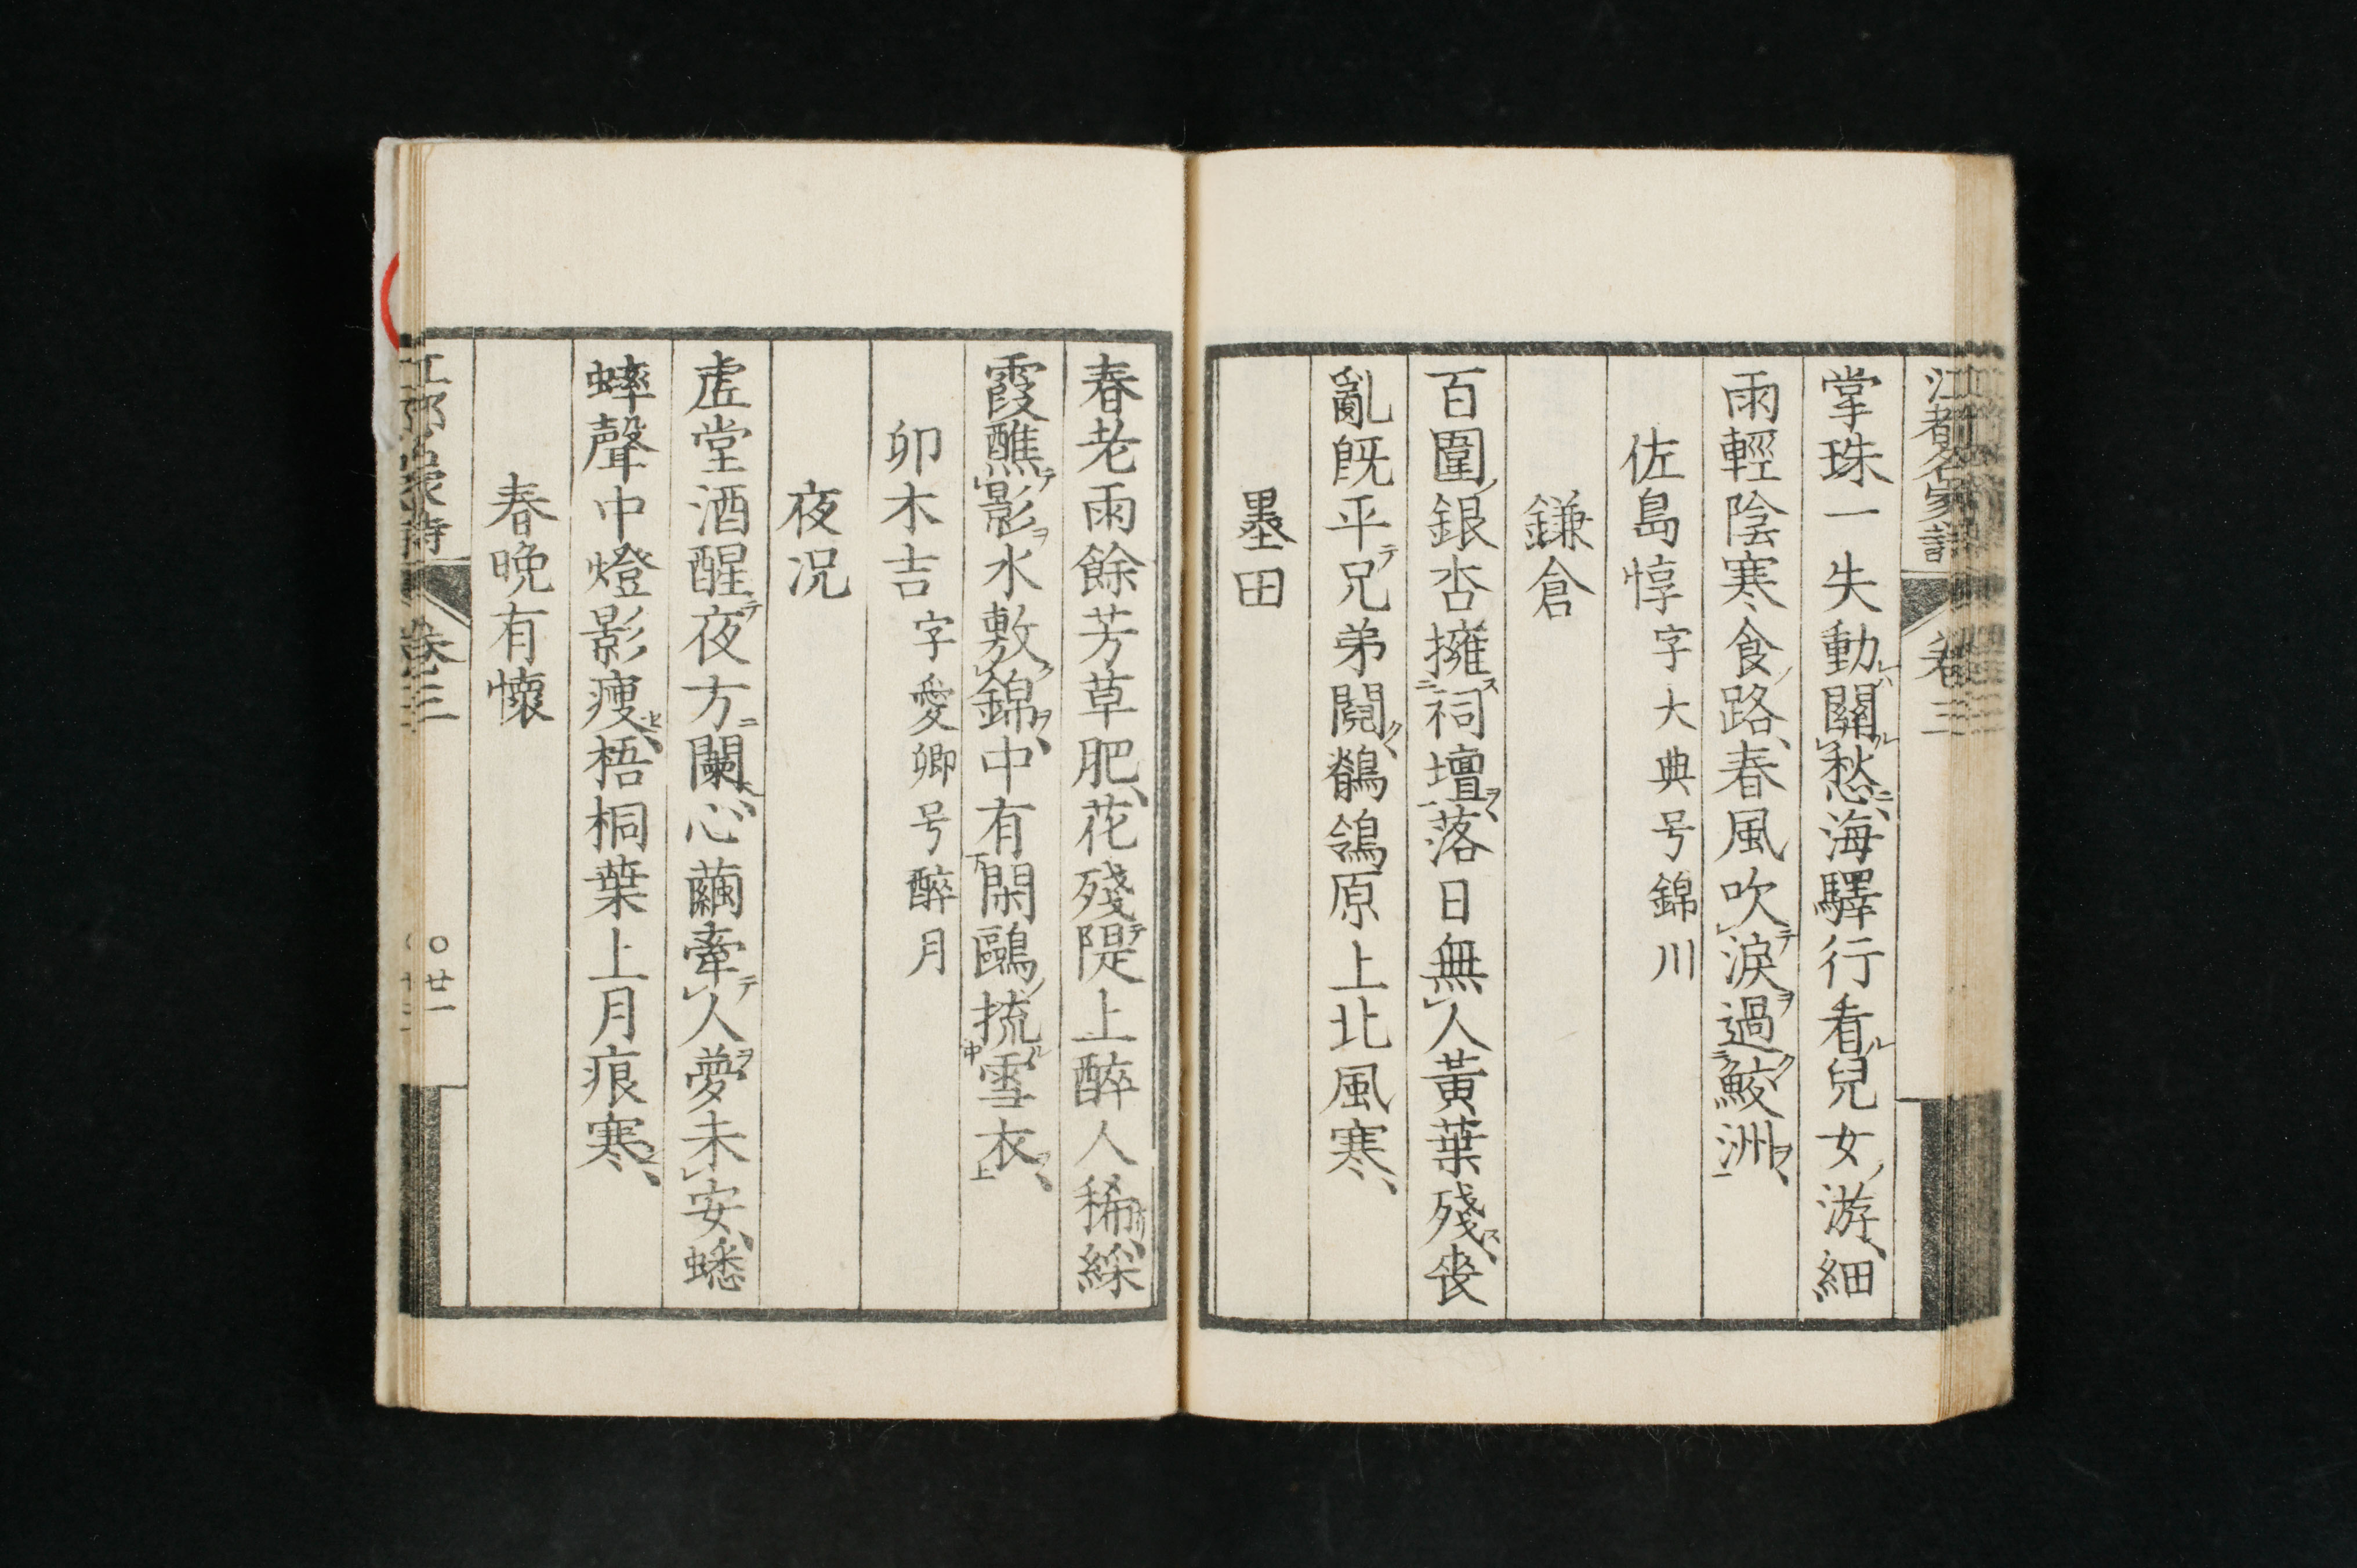 江都名家詩 卷三
掌珠一失動關愁海驛行看兒女游細
雨輕陰寒食路春風吹淚過鮫洲
佐島惇字大典号錦川
鎌倉
百圍銀杏擁祠壇落日無人黃葉殘喪
亂既平兄弟鬩鶺鴒原上北風寒
墨田
春老雨餘芳草肥花殘隄上醉人稀綵
霞蘸影水敷錦中有閑鷗掠雪衣
卯木吉字愛卿号醉月
夜況
虛堂酒醒夜方闌心繭牽人夢未安蟋
蟀聲中燈影瘦梧桐葉上月痕寒
春晚有懷
江都名家詩 卷三 〇廿一